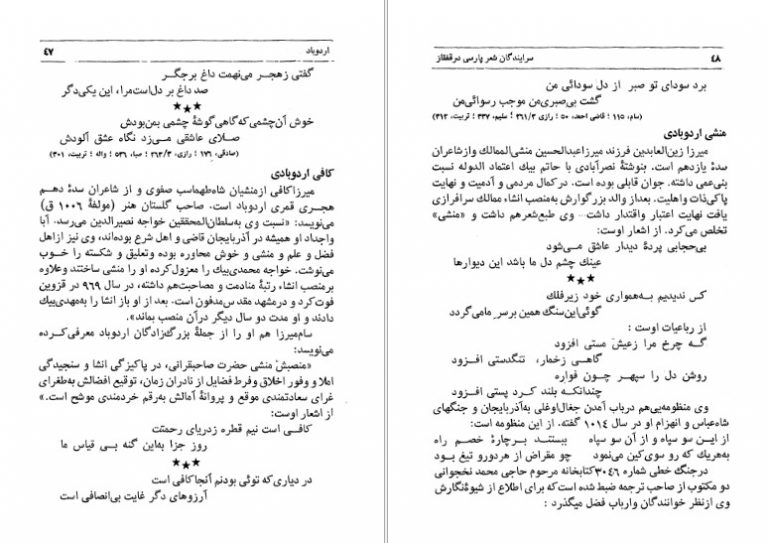 اردوباد
۴۷
گفتی زهجر می‌نهمت داغ برجگر
صد داغ بر دل‌است‌مرا، این یکی‌دگر
★★★
خوش آن‌چشمی‌که‌گاهی‌گوشهٔ چشمی‌بمن‌بودش
صلای عاشقی می‌زد نگاه عشق آلودش
(صادقی، ۱۷۶ ؛ رازی، ۲۶۳/۳ ؛ صبا، ۵۳۶ ؛ واله ؛ تربیت، ۳۰۱)
کافی اردوبادی
میرزاکافی ازمنشیان شاه‌طهماسب صفوی و از شاعران سدهٔ دهم
هجری قمری اردوباد است. صاحب گلستان هنر (مولفهٔ ۱۰۰۶ ق)
می‌نویسد: «نسبت وی به‌سلطان‌المحققین خواجه نصیرالدین می‌رسد. آبا
واجداد او همیشه در آذربایجان قاضی و اهل شرع بوده‌اند، وی نیز ازاهل
فضل و علم و منشی و خوش محاوره بوده وتعلیق و شکسته را خوب
می‌نوشت. خواجه محمدی‌بیك را معزول‌کرده او را منشی ساختند وعلاوه
برمنصب انشاء رتبهٔ منادمت و مصاحبت‌هم داشته، در سال ۹۶۹ در قزوین
فوت‌کرد و درمشهد مقدس‌مدفون است. بعد از او باز انشا را به‌مهدی‌بیك
دادند و او مدت دو سال دیگر درآن منصب بماند».
سام‌میرزا هم او را از جملهٔ بزرگ‌زادگان اردوباد معرفی‌کرده
می‌نویسد:
«منصبش منشی حضرت صاحبقرانی، در پاکیزگی انشا و سنجیدگی
املا و وفور اخلاق وفرط فضایل از نادران زمان، توقیع افضالش به‌طغرای
غرای سعادتمندی موقع و پروانهٔ آمالش به‌رقم خردمندی موشح است.»
از اشعار اوست:
کافـی است نیم قطره زدریای رحمتت
روز جزا به‌این گنه بی قیاس ما
★★★
در دیاری‌که توئی بودنم آنجا‌کافی است
آرزوهای دگر غایت بی‌انصافی است
سرایندگان شعر پارسی درقفقاز
۴۸
برد سودای تو صبر از دل سودائی من
گشت بی‌صبری‌من موجب رسوائی‌من
(سام، ۱۱۵ ؛ قاضی احمد، ۵۰ ؛ رازی ۲۶۱/۳ ؛ سلیم، ۳۳۷ ؛ تربیت، ۳۱۲)
منشی اردوبادی
میرزا زین‌العابدین فرزند میرزاعبدالحسین منشی‌الممالك وازشاعران
سدهٔ یازدهم است. بنوشتهٔ نصرآبادی با حاتم بیك اعتماد الدوله نسبت
بنی‌عمی داشته. جوان قابلی بوده است. درکمال مردمی و آدمیت و نهایت
پاکی‌ذات واهلیت. بعداز والد بزرگوارش به‌منصب انشاء ممالك سرافرازی
یافت نهایت اعتبار واقتدار داشت... وی طبع‌شعرهم داشت و «منشی»
تخلص می‌کرد. از اشعار اوست:
بی‌حجابی پردهٔ دیدار عاشق می‌شود
عینك چشم دل ما باشد این دیوارها
★★★
کس ندیدیم به‌همواری خود زیرفلك
گوئی‌این‌سنگ همین برسر مامی‌گردد
از رباعیات اوست :
گه چرخ مرا زعیش مستی افزود
گاهـی زخمار، تنگدستی افـزود
روشن دل را سپهر چون فواره
چندانکـه بلند کـرد پستی افـزود
وی منظومه‌یی‌هم درباب آمدن جغال‌اوغلی به‌آذربایجان و جنگهای
شاه‌عباس و انهزام او در سال ۱۰۱۴ گفته. از این منظومه است:
از ایـن سو سپاه و از آن سو سپاه ببستند برچارهٔ خصم راه
به‌هریك که رو سوی‌کین می‌نمود چو مقراض از هردورو تیغ بود
درجنگ خطی شماره ۳۰۴۶ کتابخانه مرحوم حاجی محمد نخجوانی
دو مکتوب از صاحب ترجمه ضبط شده است‌که برای اطلاع از شیوهٔ‌نگارش
وی ازنظر خوانندگان وارباب فضل میگذرد :